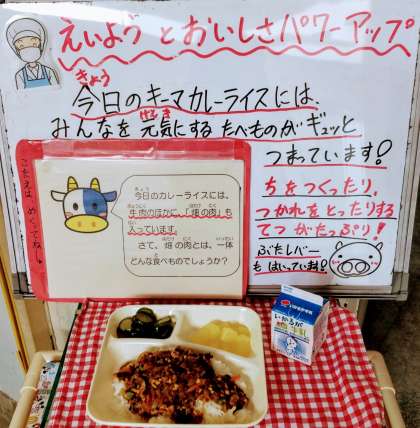 えいよう と おいしさパワーアップ
きょう
今日のキーマカレーライスには、
げんき
みんなを 元気にする たべものが ギュッと
つまっています!
ちをつくったり、
つかれをとったりする
てつ がたっぷり!
ぶたレバー
も はいっています!
こたえは めくってね
きょう
今日のカレーライスには、
ぎゅうにく はたけ にく
牛肉のほかに、「畑の肉」も
はい
入っています。
はたけ にく いったい
さて、畑の肉とは、一体
た
どんな食べものでしょうか?
いかるが
牛乳